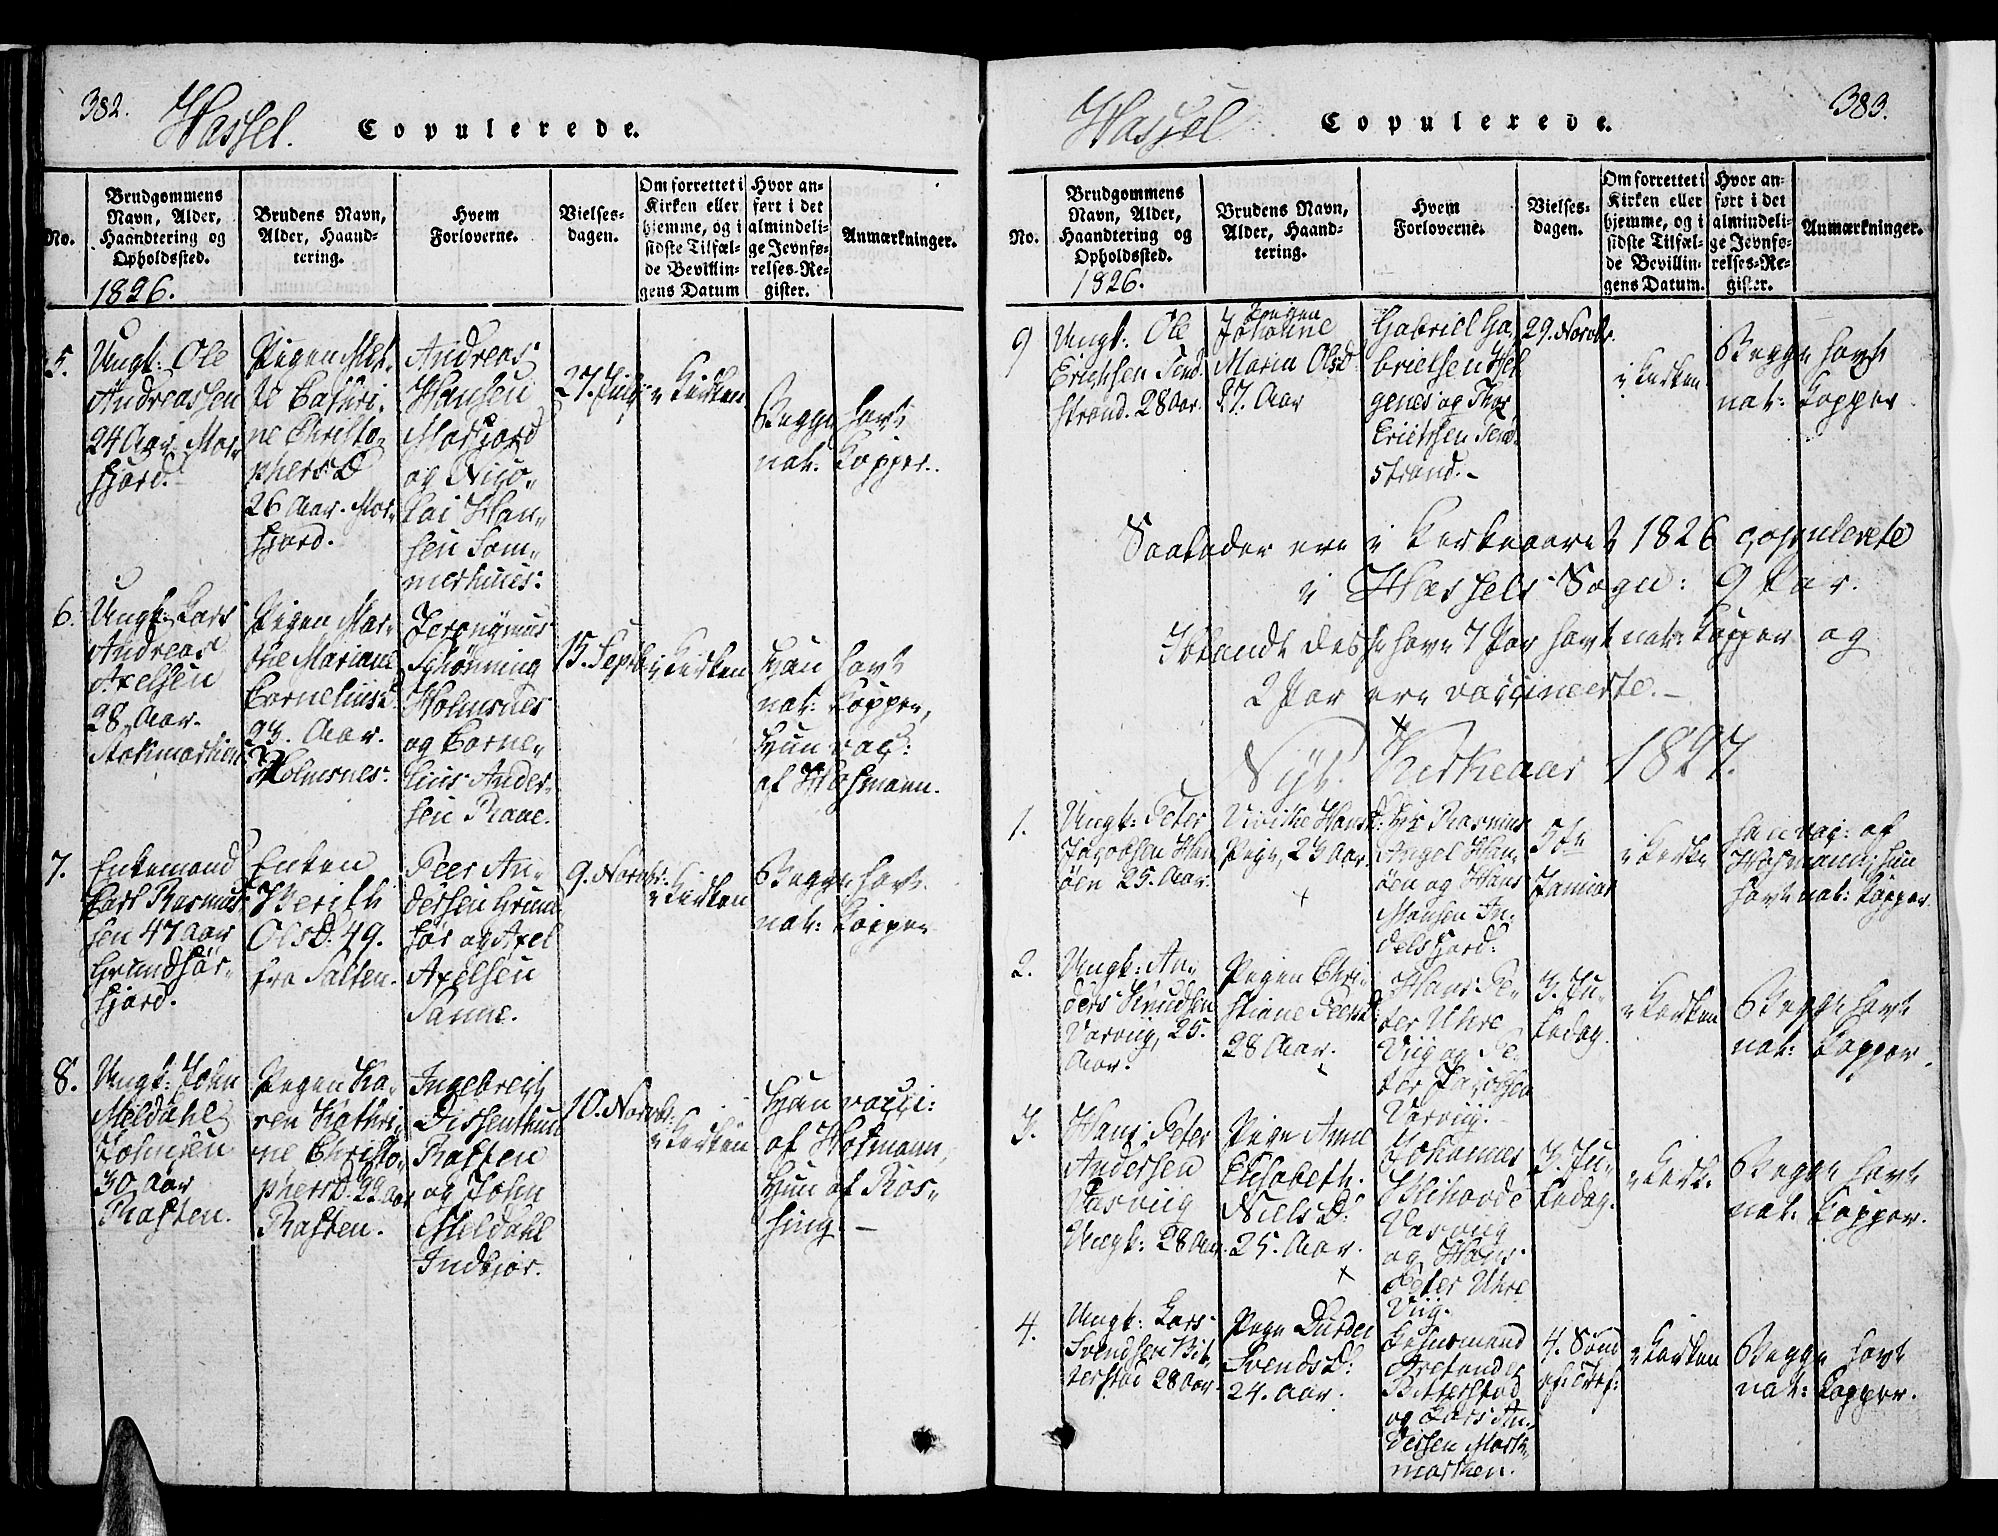 382.
Hassel.
Copulerede.
No.
Brudgommens
Navn, Alder,
Haandtering og
Opholdssted.
1826.
Brudens Navn,
Alder, Haand-
tering.
Hvem
Forloverne.
Vielses-
dagen.
Om forrettet i
Kirken eller
hjemme, og i
sidste Tilfæl-
de Bevillin-
gens Datum
Hvor an-
ført i det
almindeli-
ge Jevnfø-
relses-Re-
gister.
Anmærkninger.
5.
Ungk: Ole
Andreassen
24 Aar. Mor-
fjord.
Pigen Met-
te Cathri-
ne Christo-
phersD
26 Aar. Mor-
fjord.
Andreas
Hansen
Morfjord
og Nico-
lai Han-
sen Som-
merhuus:
27. Julij
i Kirken
Begge havt
nat: Kopper.
6.
Ungk: Lars
Andreas
Axelsen
28 Aar.
Stokmarken
Pigen Mar-
the Mariane
CorneliusD.
23. Aar.
Holmsnes:
Jeronymus
Schønning
Holmsnes
og Corne-
lius Ander-
sen Raae.
15. Septb:
i Kirken
Han havt
nat: Kopper,
Hun vac:
af Hofmann.
7.
Enkemand
Lars Rasmus-
sen 47 Aar
Grundfør-
fjord.
Enken
Berith
OlsD: 49.
fra Salten.
Peer An-
dersen Grund-
før og Axel
Axelsen
Sanne.
9. Novbr:
i Kirken
Begge havt
nat: Kopper
8.
Ungk: John
Meldahl
Johnsen
30 Aar
Raften.
Pigen Ka-
ren Kathri-
ne Christo-
phersD. 22 Aar
Raften.
Ingebreth
Dissenthun
Raften
og John
Meldahl
Indbjor.
10. Novbr:
i Kirken
Han vacci:
af Hofmann,
Hun af Røs-
sing. —
383.
Hassel
Copulerede.
No.
Brudgommens
Navn, Alder,
Haandtering og
Opholdssted.
1826.
Brudens Navn,
Alder, Haand-
tering.
Hvem
Forloverne.
Vielses-
dagen.
Om forrettet i
Kirken eller
hjemme, og i
sidste Tilfæl-
de Bevillin-
gens Datum.
Hvor an-
ført i det
almindeli-
ge Jevnfø-
relses-Re-
gister.
Anmærkninger.
9
Ungk: Ole
Erichsen Sand-
strand. 28 Aar.
Pigen
Johanne
Maria OlsD
27. Aar
Gabriel Ga-
brielsen Hel-
genes og Thor
Erichsen Sand-
strand. -
29. Novbr.
i Kirken
Begge havt
nat: Kopper
Saaledes ere i Kirkeaaret 1826 copulerete
i Hassels Sogn: 9 Par.
Iblandt disse have 7 Par havt nat: Kopper og
2 Par ere vaccinerte. -
Nyt Kirkeaar 1827.
1.
Ungk: Peter
Jacobsen Han-
øen 25. Aar.
Vivike HansD:
Pige, 23 Aar
Rasmus
Angel Han-
øen og Hans
Monsen In-
delsfjord:
5te
Januar
i Kirke
Han vac: af
Hofmann, Hun
havt nat: Kopper
2.
Ungk: An-
ders Knudsen
Varviig, 25.
Aar.
Pigen Chri-
stiane PeersD:
28 Aar.
Hans Pe-
ter Uhre
Viig og Pe-
ter
Varviig.
3. Ju-
ledag.
i Kirken
Begge havt
nat: Kopper.
3.
Hans Peter
Andersen
Varviig
Ungk: 28 Aar.
Pige Anne
Elisabeth.
NielsD:
25. Aar.
Johannes
Varviig
og Hans
Peter Uhre
Viig.
3. Ju-
ledag.
i Kirk.
Begge havt
nat: Kopper.
4.
Ungk: Lars
Svendsen Bit-
terstad 28 Aar
Pige Durdei
SvendsD:
24. Aar.
Lehnsmand
Bitterstad
og Lars An-
dersen Mork-
marken.
4. Sønd
ef: Tref:
i Kirken
Begge havt
nat: Kopper.